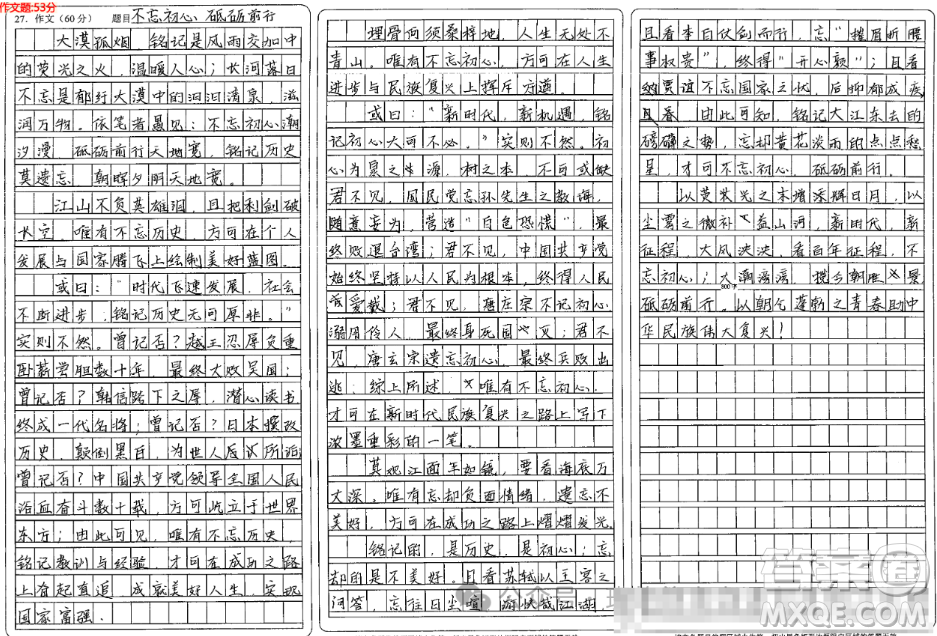 作文题:53分
27. 作文(60分) 题目 不忘初心 砥砺前行
大漠孤烟,铭记是风雨交加中
的荧光之火,温暖人心;长河落日
不忘是郁纡大漠中的汩汩清泉,滋
润万物。依笔者愚见:不忘初心潮
汐漫,砥砺前行天地宽,铭记历史
莫遗忘,朝晖夕朗天地宽。
江山不负英雄泪,且把利剑破
长空。唯有不忘历史,方可在个人
发展与国家腾飞上绘制美好蓝图。
或曰:“时代飞速发展,社会
不断进步,铭记历史无可厚非。”
实则不然。曾记否?越王忍辱负重
卧薪尝胆数十年,最终大败吴国;
曾记否?韩信胯下之辱,潜心读书
终成一代名将;曾记否?日本篡改
历史,颠倒黑白,为世人反议所诟
曾记否?中国共产党领导全国人民
浴血奋斗数十载,方可屹立于世界
东方;由此可见,唯有不忘历史,
铭记教训与经验,才可在成功之路
上奋起直追,成就美好人生,实现
国家富强。
埋骨何须桑梓地,人生无处不
青山。唯有不忘初心,方可在人生
进步与民族复兴上挥斥方遒。
或曰:“新时代,新机遇,铭
记初心大可不必。”实则不然。初
心为泉之源,树之本,不可或缺
君不见,国民党忘孙先生之教诲,
随意妄为,营造“白色恐慌”,最
终败退台湾;君不见,中国共产党
始终坚持以人民为根本,终得人民
爱戴;君不见,唐庄宗不记初心
溺用伶人,最终身死国灭;君不
见,唐玄宗遗忘初心,最终兵败出
逃;综上所述,唯有不忘初心,
才可在新时代民族复兴之路上写下
浓墨重彩的一笔。
莫观江面平如镜,要看海底万
丈深。唯有忘却负面情绪,遗忘不
美好,方可在成功之路上熠熠发光
铭记的,是历史,是初心;忘
却的是不美好。且看苏轼以主客之
问答,忘往日尘喧,游快哉江湖,
且看李白仗剑而行,忘“摧眉折腰
事权贵”,终得“开心颜”;且看
贾谊不忘国家之忧,后抑郁成疾
且春,由此可知,铭记大江东去的
磅礴之势,忘却黄花淡雨的点点稀
星,才可不忘初心,砥砺前行。
以荧荧光之末增添辉日月,以
尘雾之微补益山河,新时代,新
征程,大风泱泱,看百年征程,不
忘初心;大潮滂滂,揽今朝胜景
800字
砥砺前行。以朝气蓬勃之青春助中
华民族伟大复兴!
答案圈
公众号